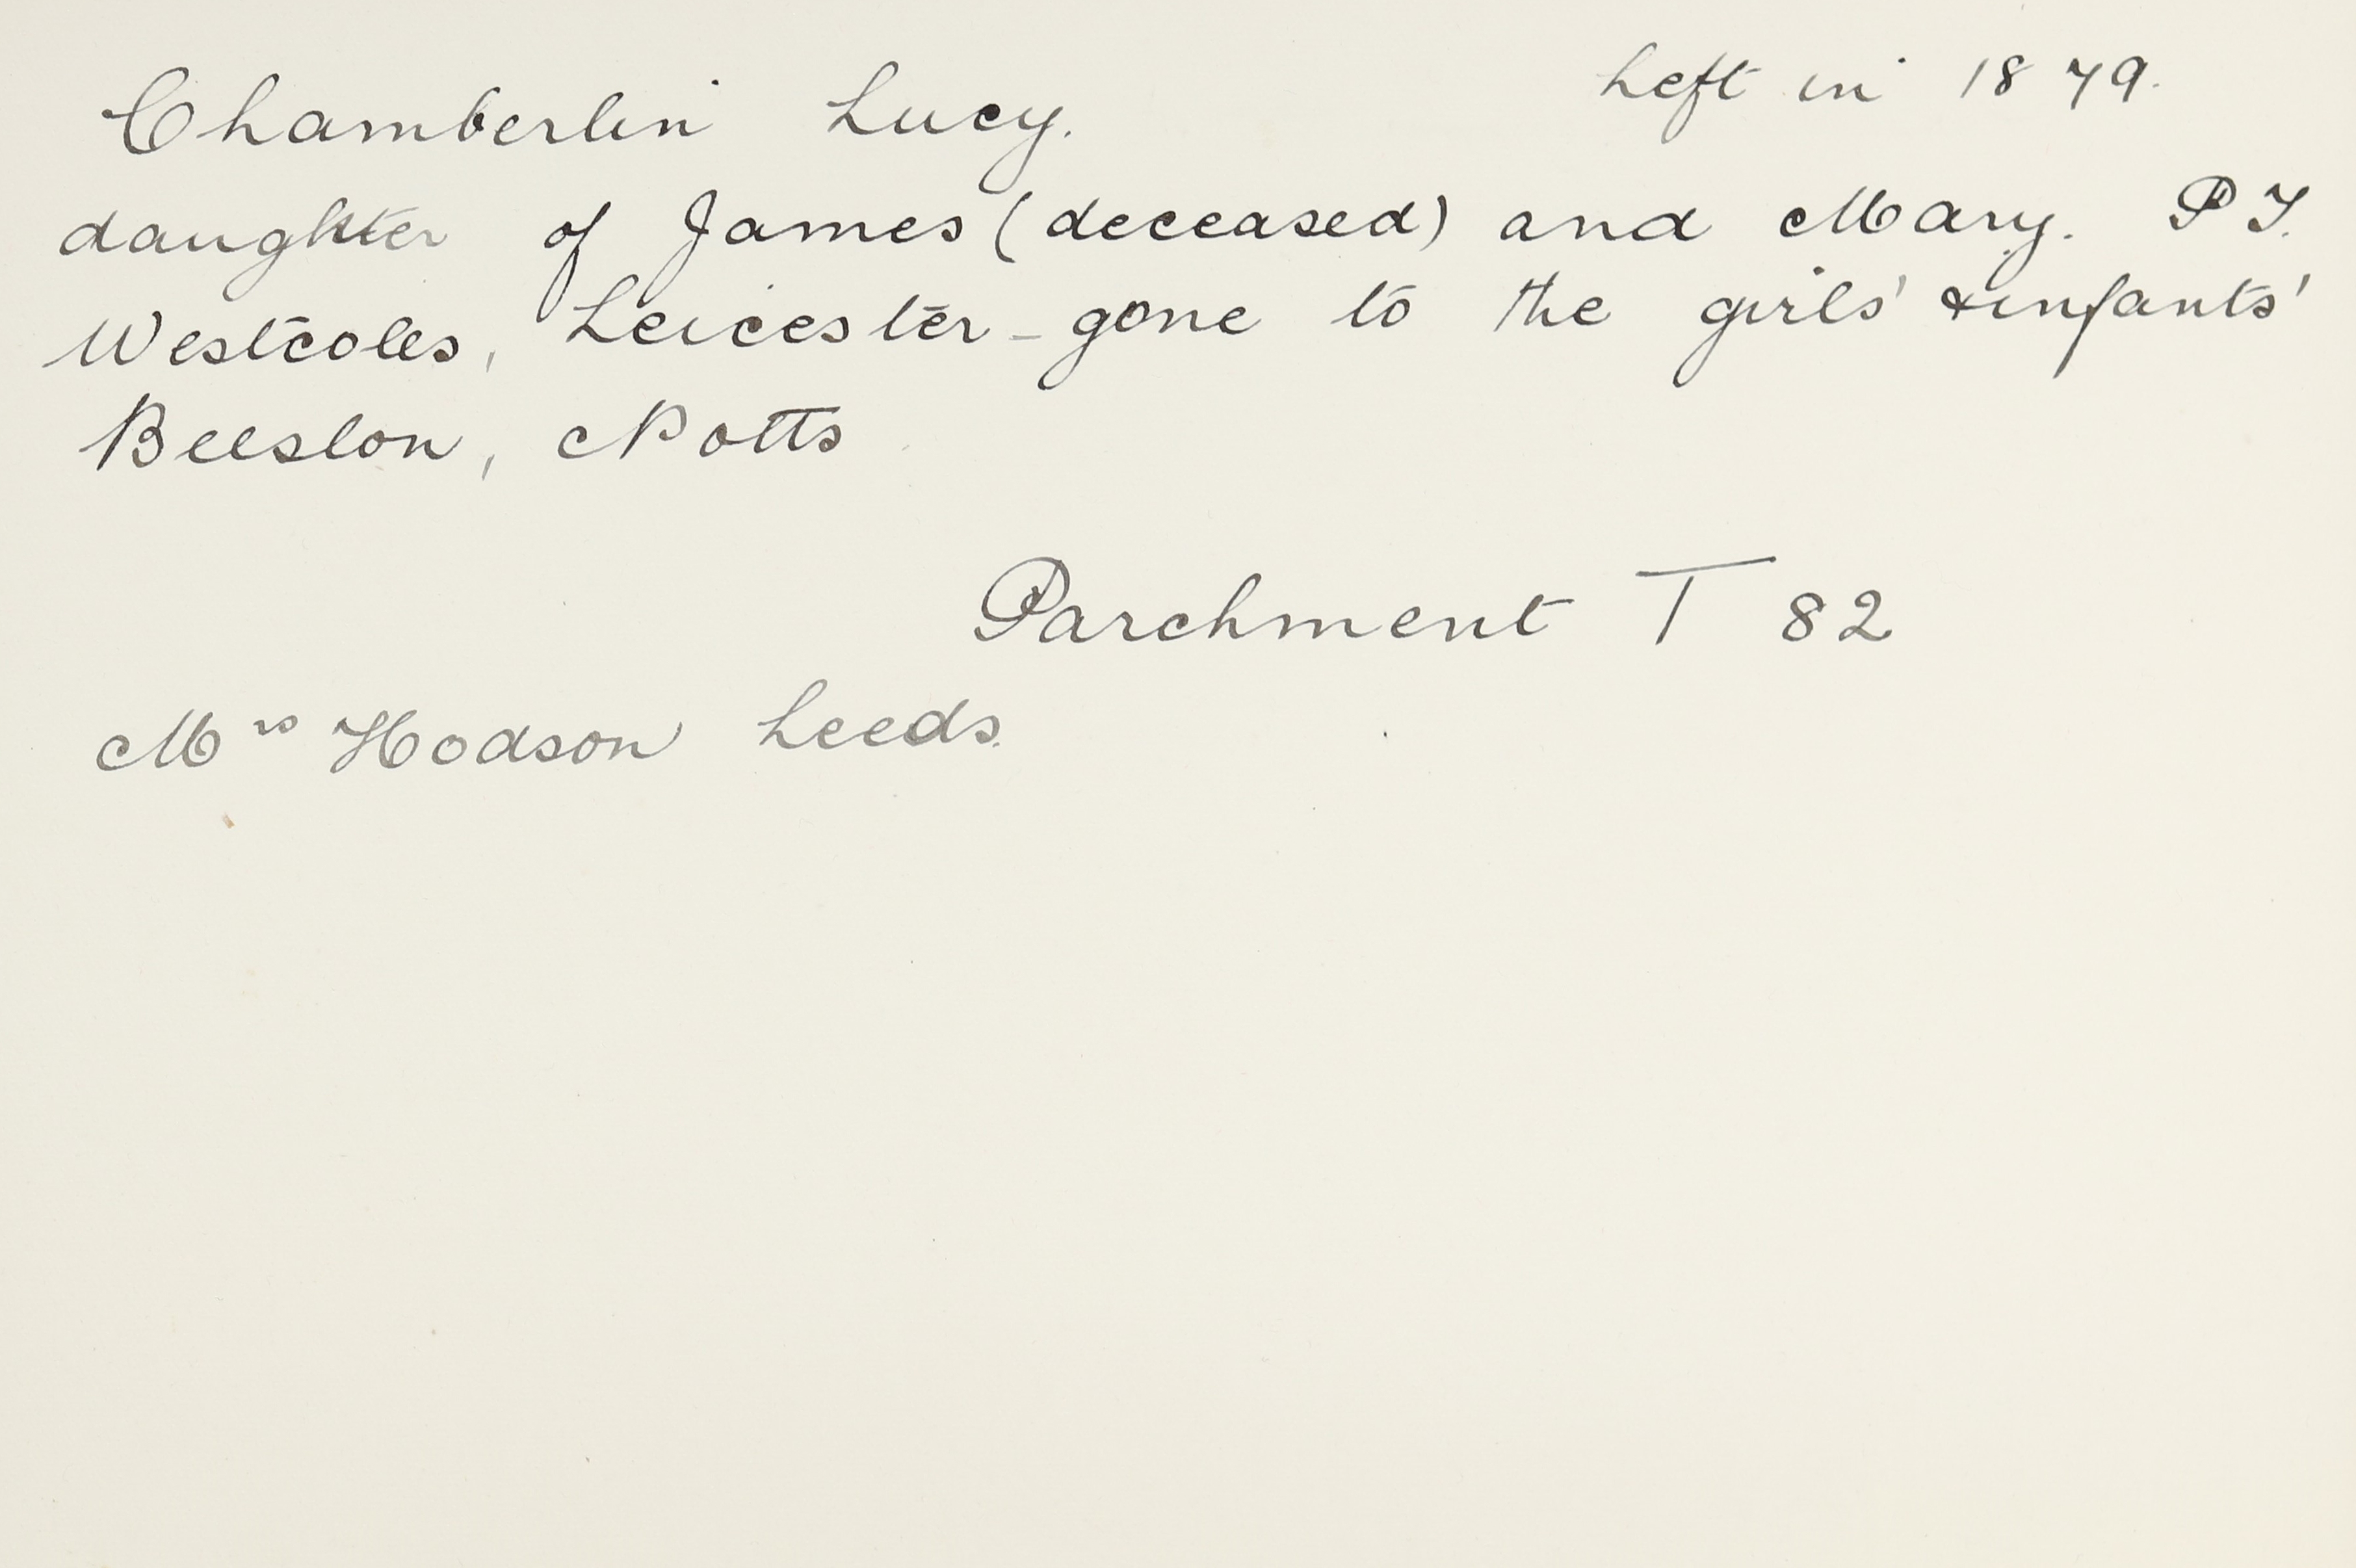 Chamberlin Lucy. Left in 1879.
daughter of James (deceased) and Mary. P.T.
Westcotes, Leicester - gone to the girls' & infants'
Beeston, Notts
Parchment T 82
Mrs Hodson Leeds.